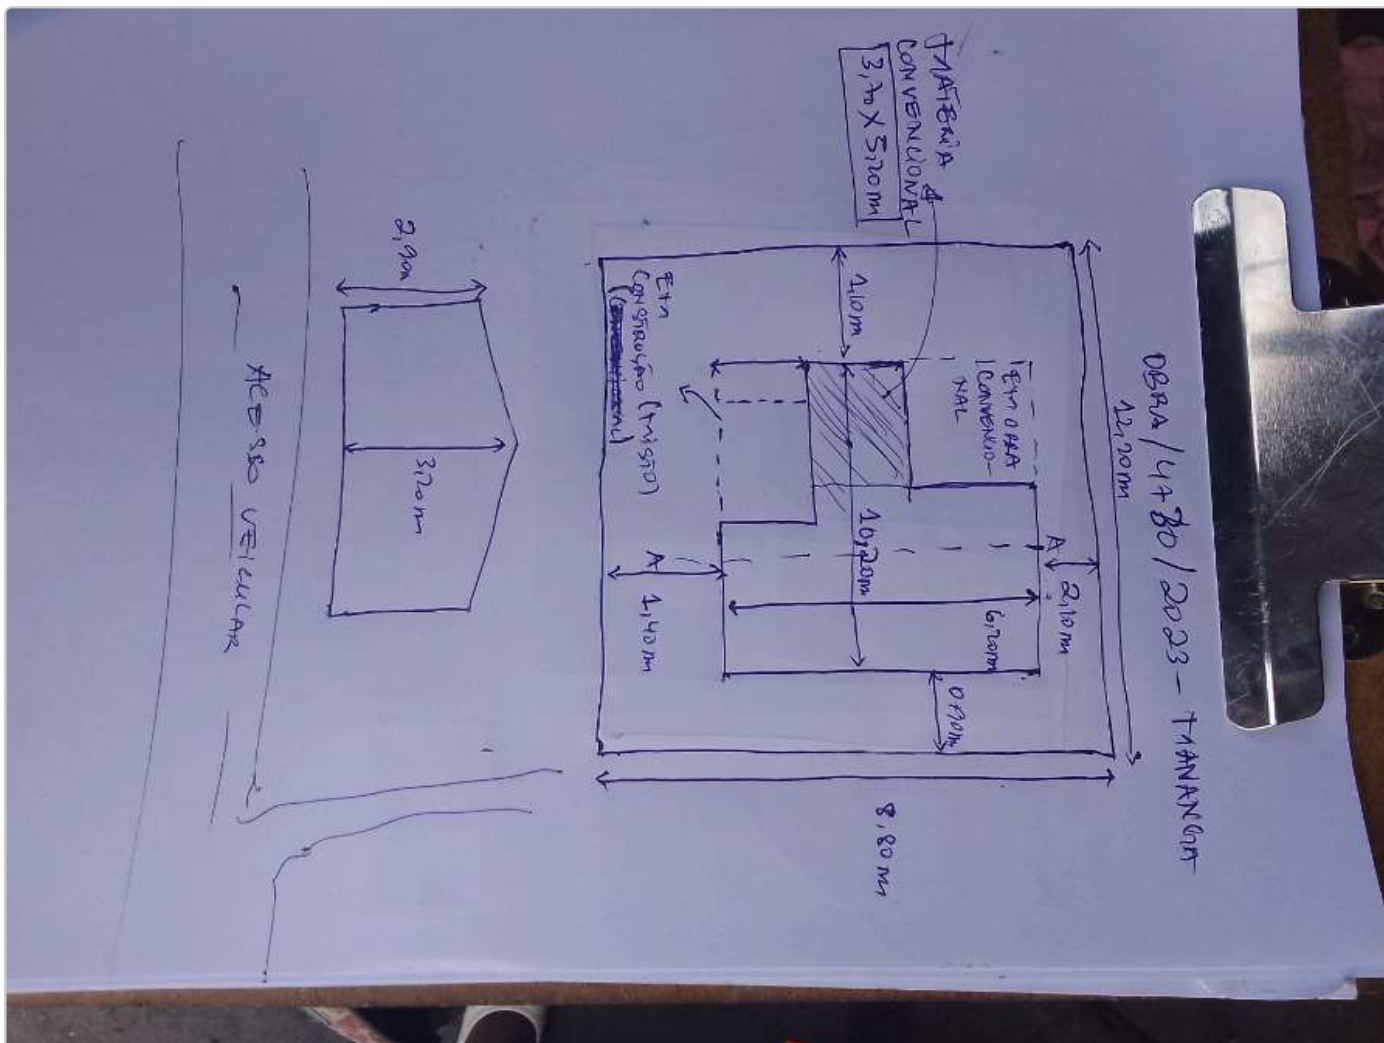 OBRA/4780/2023 - MANANGA
12,20m
MATÉRIA
CONVENCIONAL
3,70 X 5,20m
1,10m
EM OBRA
CONVENCIO-
NAL
A
2,10m
10,20m
6,20m
0,90m
8,80m
EM
CONSTRUÇÃO (MISTO)
A
1,40m
2,90m
3,20m
ACESSO VEICULAR